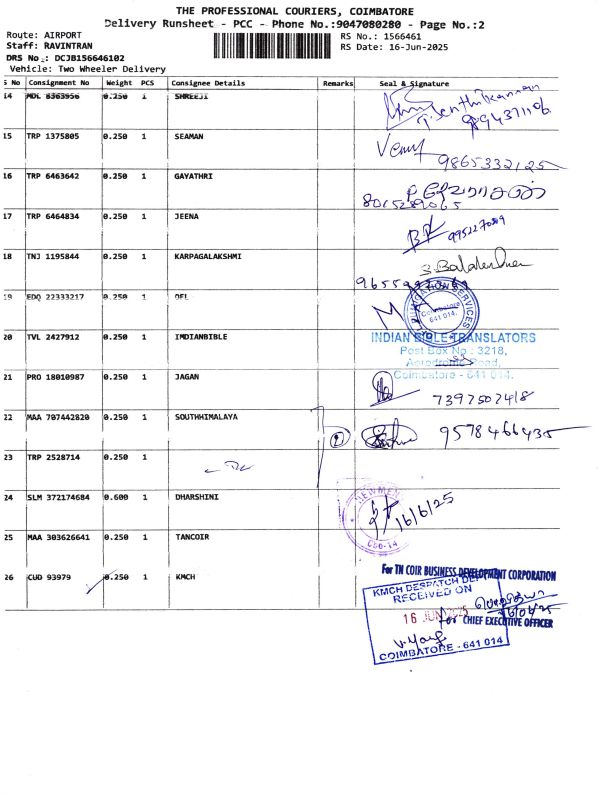 THE PROFESSIONAL COURIERS, COIMBATORE
Delivery Runsheet - PCC - Phone No.:9047080280 - Page No.:2
Route: AIRPORT
RS No.: 1566461
Staff: RAVINTRAN
RS Date: 16-Jun-2025
DRS No.: DCJB156646102
Vehicle: Two Wheeler Delivery
S No Consignment No Weight PCS Consignee Details Remarks Seal & Signature
14 MDL 8363956 0.250 1 SHREEJI
15 TRP 1375805 0.250 1 SEAMAN
9865332125
16 TRP 6463642 0.250 1 GAYATHRI
8015289065
17 TRP 6464834 0.250 1 JEENA
18 TNJ 1195844 0.250 1 KARPAGALAKSHMI
19 EDQ 22333217 0.250 1 OEL
Coimbatore
641 014.
20 TVL 2427912 0.250 1 IMDIANBIBLE
INDIAN BIBLE TRANSLATORS
Post Box No.: 3218,
Aerodrome Road,
Coimbatore - 641 014.
21 PRO 18010987 0.250 1 JAGAN
7397502418
22 MAA 707442820 0.250 1 SOUTHHIMALAYA
9578466435
23 TRP 2528714 0.250 1
24 SLM 372174684 0.600 1 DHARSHINI
NEWMEN
16/6/25
CBE-14
25 MAA 303626641 0.250 1 TANCOIR
For TN COIR BUSINESS DEVELOPMENT CORPORATION
26 CUD 93979 0.250 1 KMCH
KMCH DESPATCH
RECEIVED ON
16 JUN 2025
for CHIEF EXECUTIVE OFFICER
COIMBATORE - 641 014